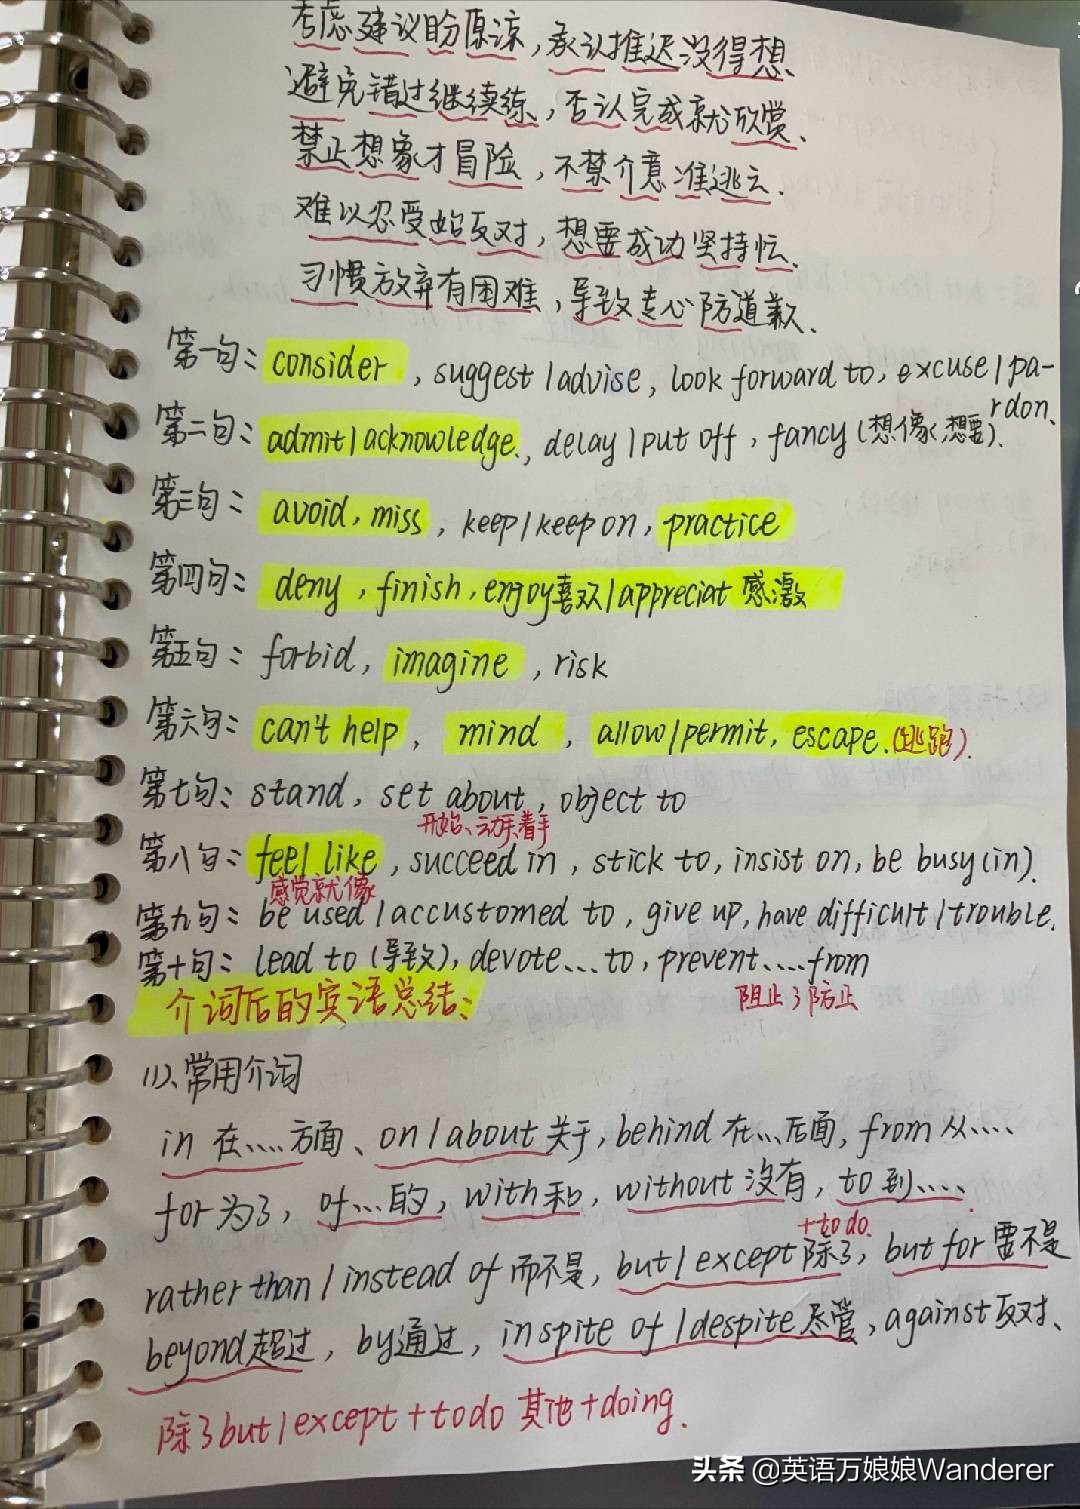 考虑建议盼原谅，承认推迟没得想、
避免错过继续练，否认完成就欣赏、
禁止想象才冒险，不禁介意准逃亡．
难以忍受始反对，想要成功坚持忙、
习惯放弃有困难，导致专心防道歉、
第一句：consider , suggest / advise, look forward to, excuse / pa-
rdon、
第二句：admit / acknowledge., delay / put off , fancy (想像、想要).
第三句：avoid, miss , keep / keep on, practice
第四句：deny , finish, enjoy喜欢 / appreciat 感激
第五句：forbid, imagine , risk
第六句：can't help , mind , allow / permit, escape.(逃跑).
第七句：stand, set about , object to
开始、动手、着手
第八句：feel like , succeed in , stick to, insist on, be busy (in).
感觉就像
第九句：be used / accustomed to , give up, have difficult / trouble.
第十句：lead to (导致), devote...to, prevent....from
阻止、防止
介词后的宾语总结：
(1)、常用介词
in 在....方面、on / about 关于, behind 在...后面, from 从....
for 为了, of...的, with 和, without 没有, to 到....
+to do.
rather than / instead of 而不是, but / except 除了, but for 要不是
beyond超过, by通过, in spite of / despite 尽管, against反对、
除了but / except + to do 其他 + doing.
头条 @英语万娘娘Wanderer